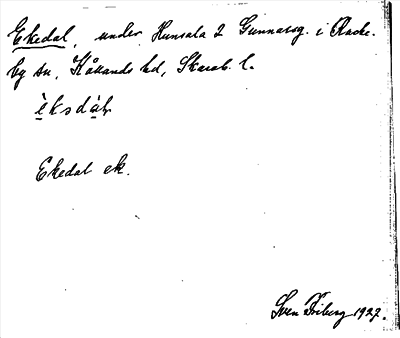 Ekedal, under Hunsala 2 Gunnarsg. i Racke-
by sn, Kållands hd, Skarab. l.
èksdàł
Ekedal ek.
Sven Friberg 1927.